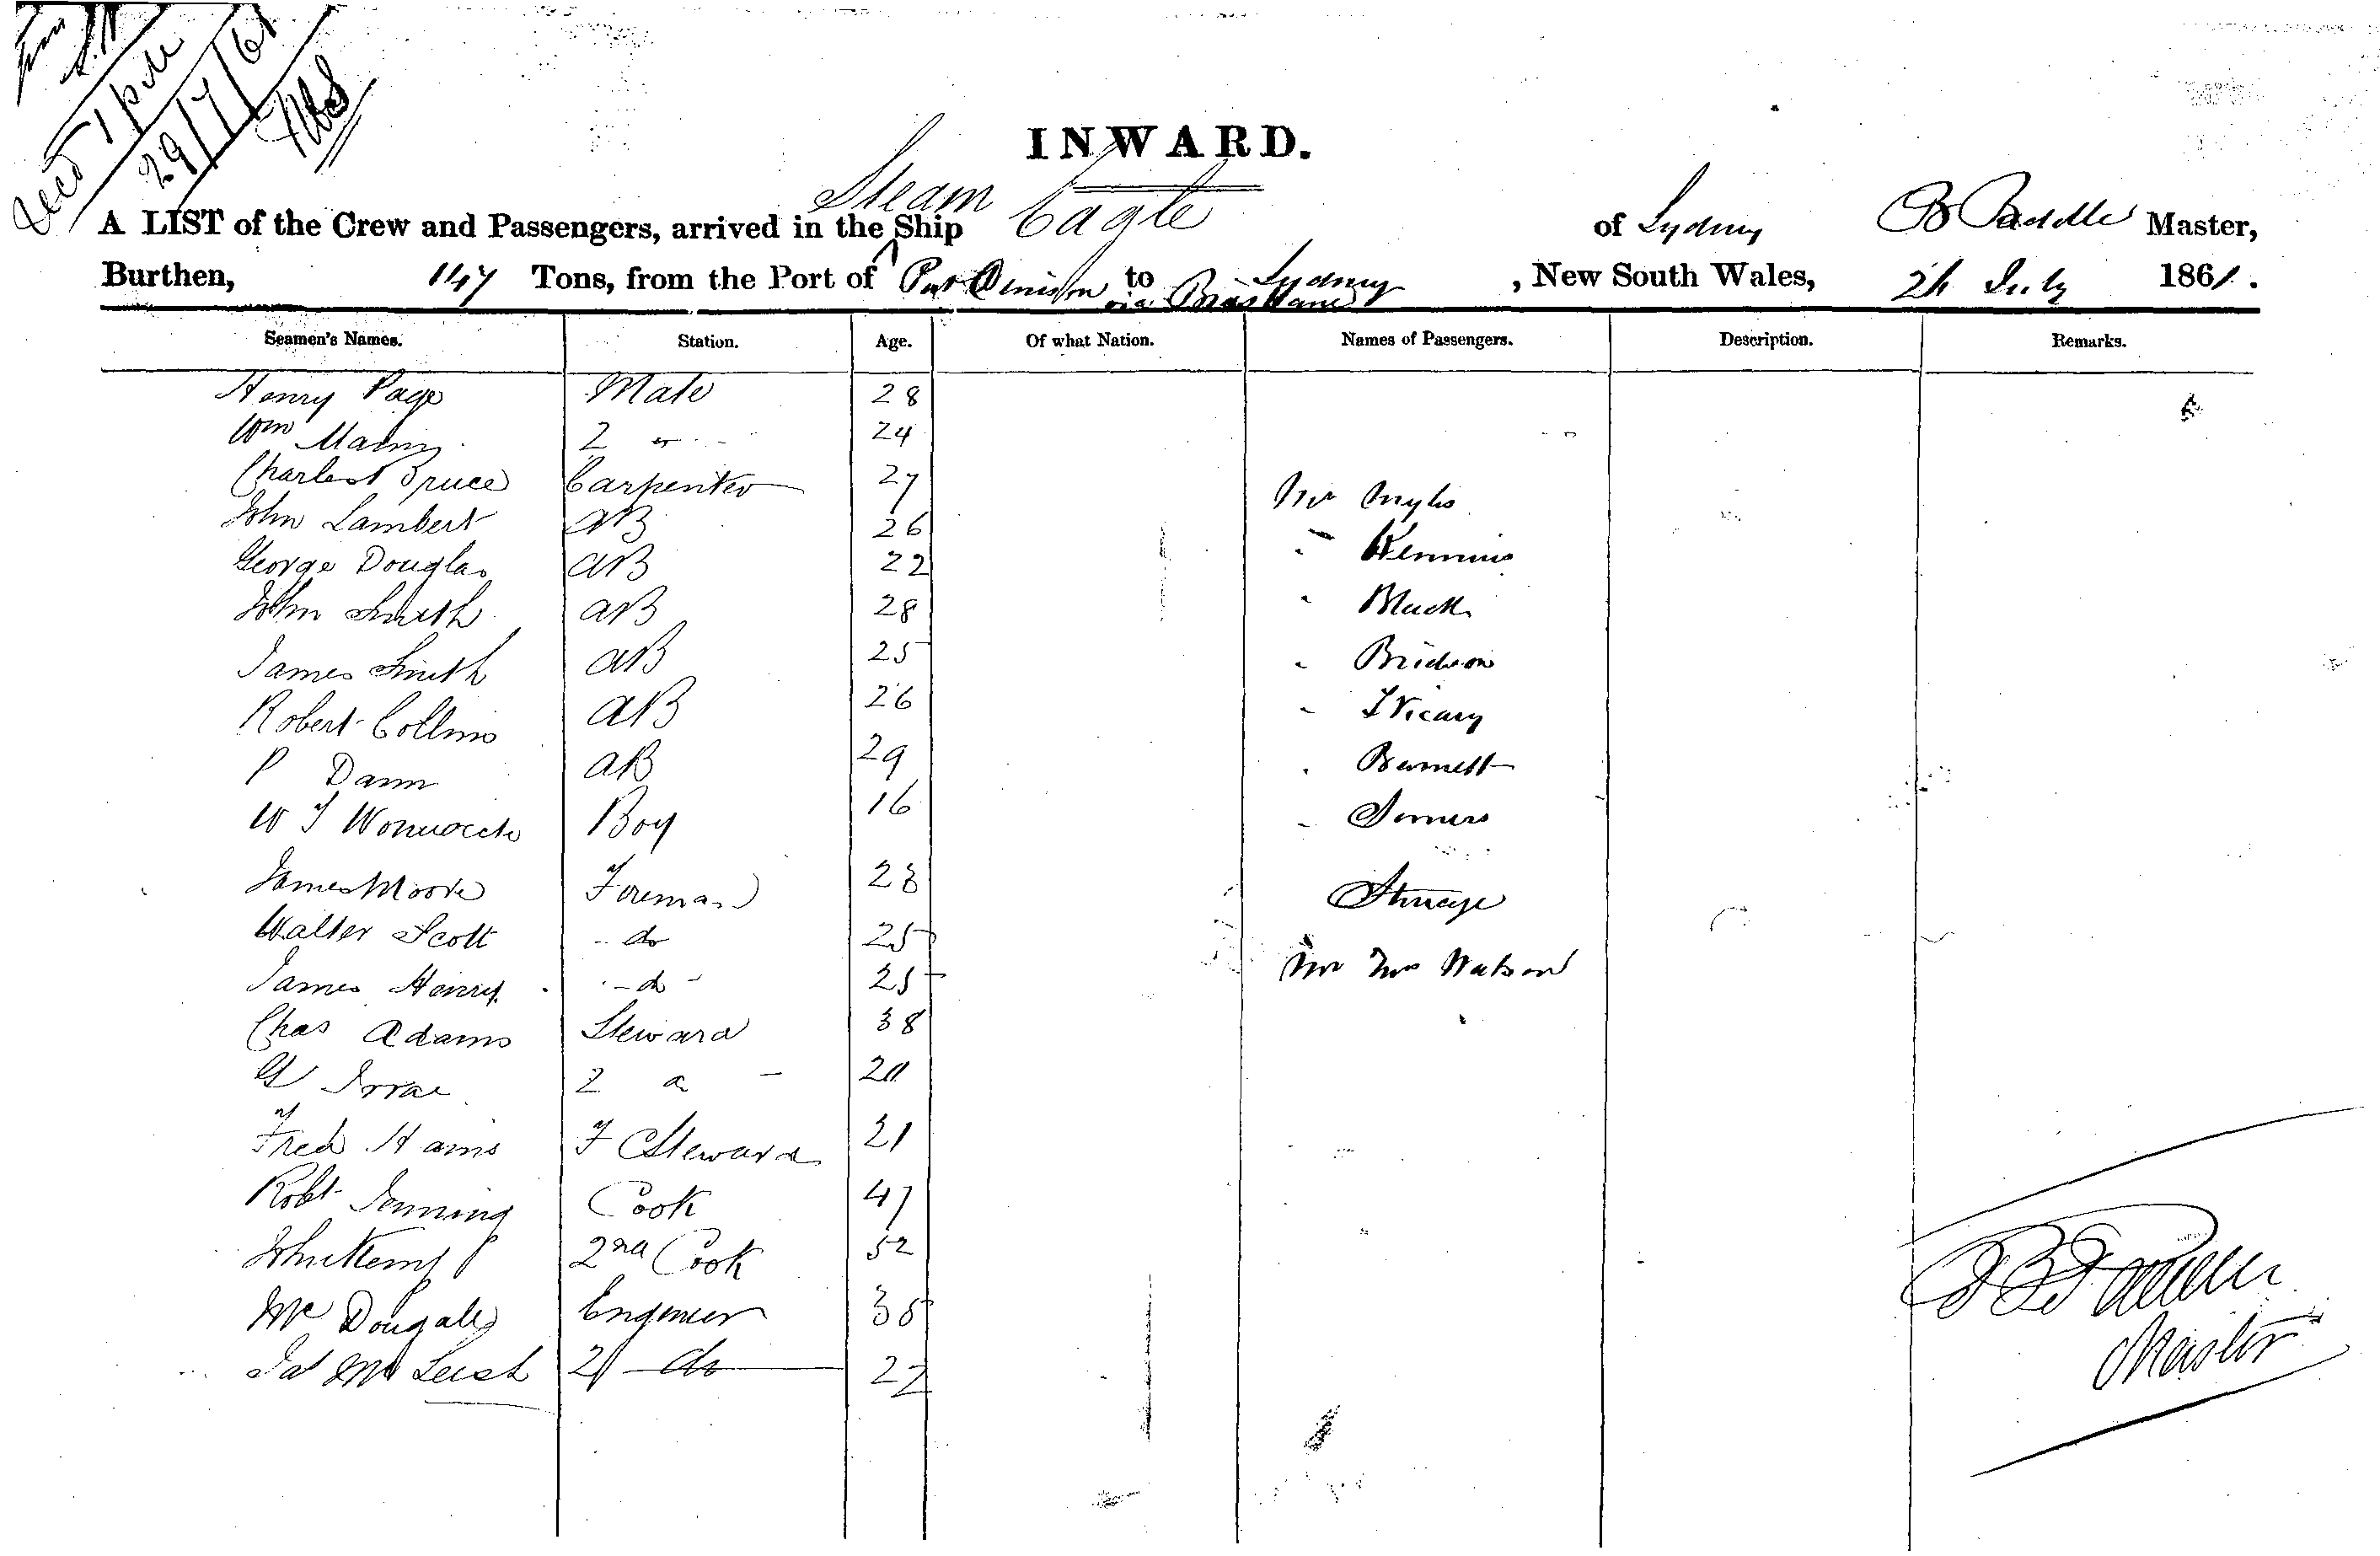 Recd 1 pm
29/7/61
INWARD.
A LIST of the Crew and Passengers, arrived in the Steam Ship Eagle of Sydney Master,
Burthen, 147 Tons, from the Port of Port Denison to Sydney via Brisbane, New South Wales, July 1861.
Seamen's Names. Station. Age. Of what Nation. Names of Passengers. Description. Remarks.
Henry Page Mate 28
Wm 2 24
Charles Bruce Carpenter 27 Mr
John Lambert AB 26
George Douglas AB 22
John Smith AB 28 Black
James Smith AB 25
Robert Collins AB 26 Vicary
P Dann AB 29 Barnett
W J Boy 16 Somers
James Moore Foreman 28 Steerage
Walter Scott do 25
James Henry do 25 Mr Mrs Watson
Chas Adams Steward 38
2 20
Fred Hams F Steward 21
Robt Jenning Cook 47
John Kemp 2nd Cook 52
Mc Dougall Engineer 35
Mc Leish 2 do 22
Master